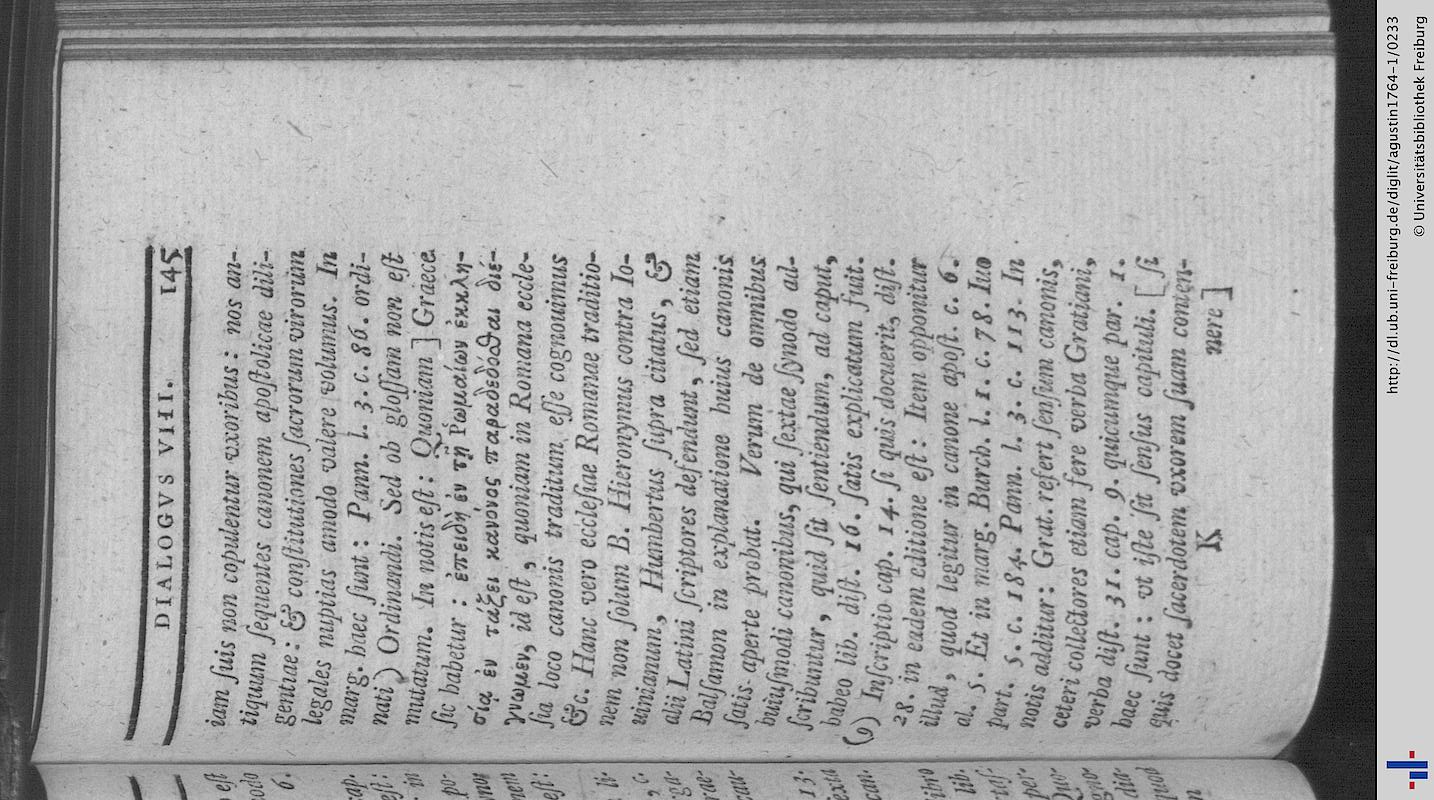 DIALOGVS VIII. 145
iam ſuis non copulentur vxoribus: nos an-
tiquum ſequentes canonem apoſtolicae dili-
gentiae: & conſtitutiones ſacrorum virorum
legales nuptias amodo valere volumus. In
marg. haec ſunt: Pann. l. 3. c. 86. ordi-
nati) Ordinandi. Sed ob gloſſam non eſt
mutatum. In notis eſt: Quoniam] Graece
ſic habetur: ἐπειδὴ ἐν τῇ Ῥωμαίων ἐκκλη-
σίᾳ ἐν ταξει κανονος παραδεδόσθαι διέ-
γνωμεν, id eſt, quoniam in Romana eccle-
ſia loco canonis traditum eſſe cognouimus
&c. Hanc vero eccleſiae Romanae traditio-
nem non ſolum B. Hieronymus contra Io-
uinianum, Humbertus ſupra citatus, &
alii Latini ſcriptores defendunt, ſed etiam
Balſamon in explanatione huius canonis
ſatis aperte probat. Verum de omnibus
huiuſmodi canonibus, qui ſextae ſynodo ad-
ſcribuntur, quid ſit ſentiendum, ad caput,
habeo lib. diſt. 16. ſatis explicatum fuit.
(9) Inſcriptio cap. 14. ſi quis docuerit, diſt.
28. in eadem editione eſt: Item opponitur
illud, quod legitur in canone apoſt. c. 6.
al. 5. Et in marg. Burch. l. 1. c. 78. Iuo
part. 5. c. 184. Pann. l. 3. c. 113. In
notis additur: Grat. refert ſenſum canonis,
ceteri collectores etiam fere verba Gratiani,
verba diſt. 31. cap. 9. quicumque par. 1.
haec ſunt: vt iſte ſit ſenſus capituli. [ſi
quis docet ſacerdotem vxorem ſuam conten-
K nere]
eſt
6.
cap.
eſt:
in
po-
nem
eſt:
li-
c.
rae-
13.
exta
can.
libro
lib.
per-
Quo-
quod
n
http://dl.ub.uni-freiburg.de/diglit/agustin1764-1/0233
© Universitätsbibliothek Freiburg